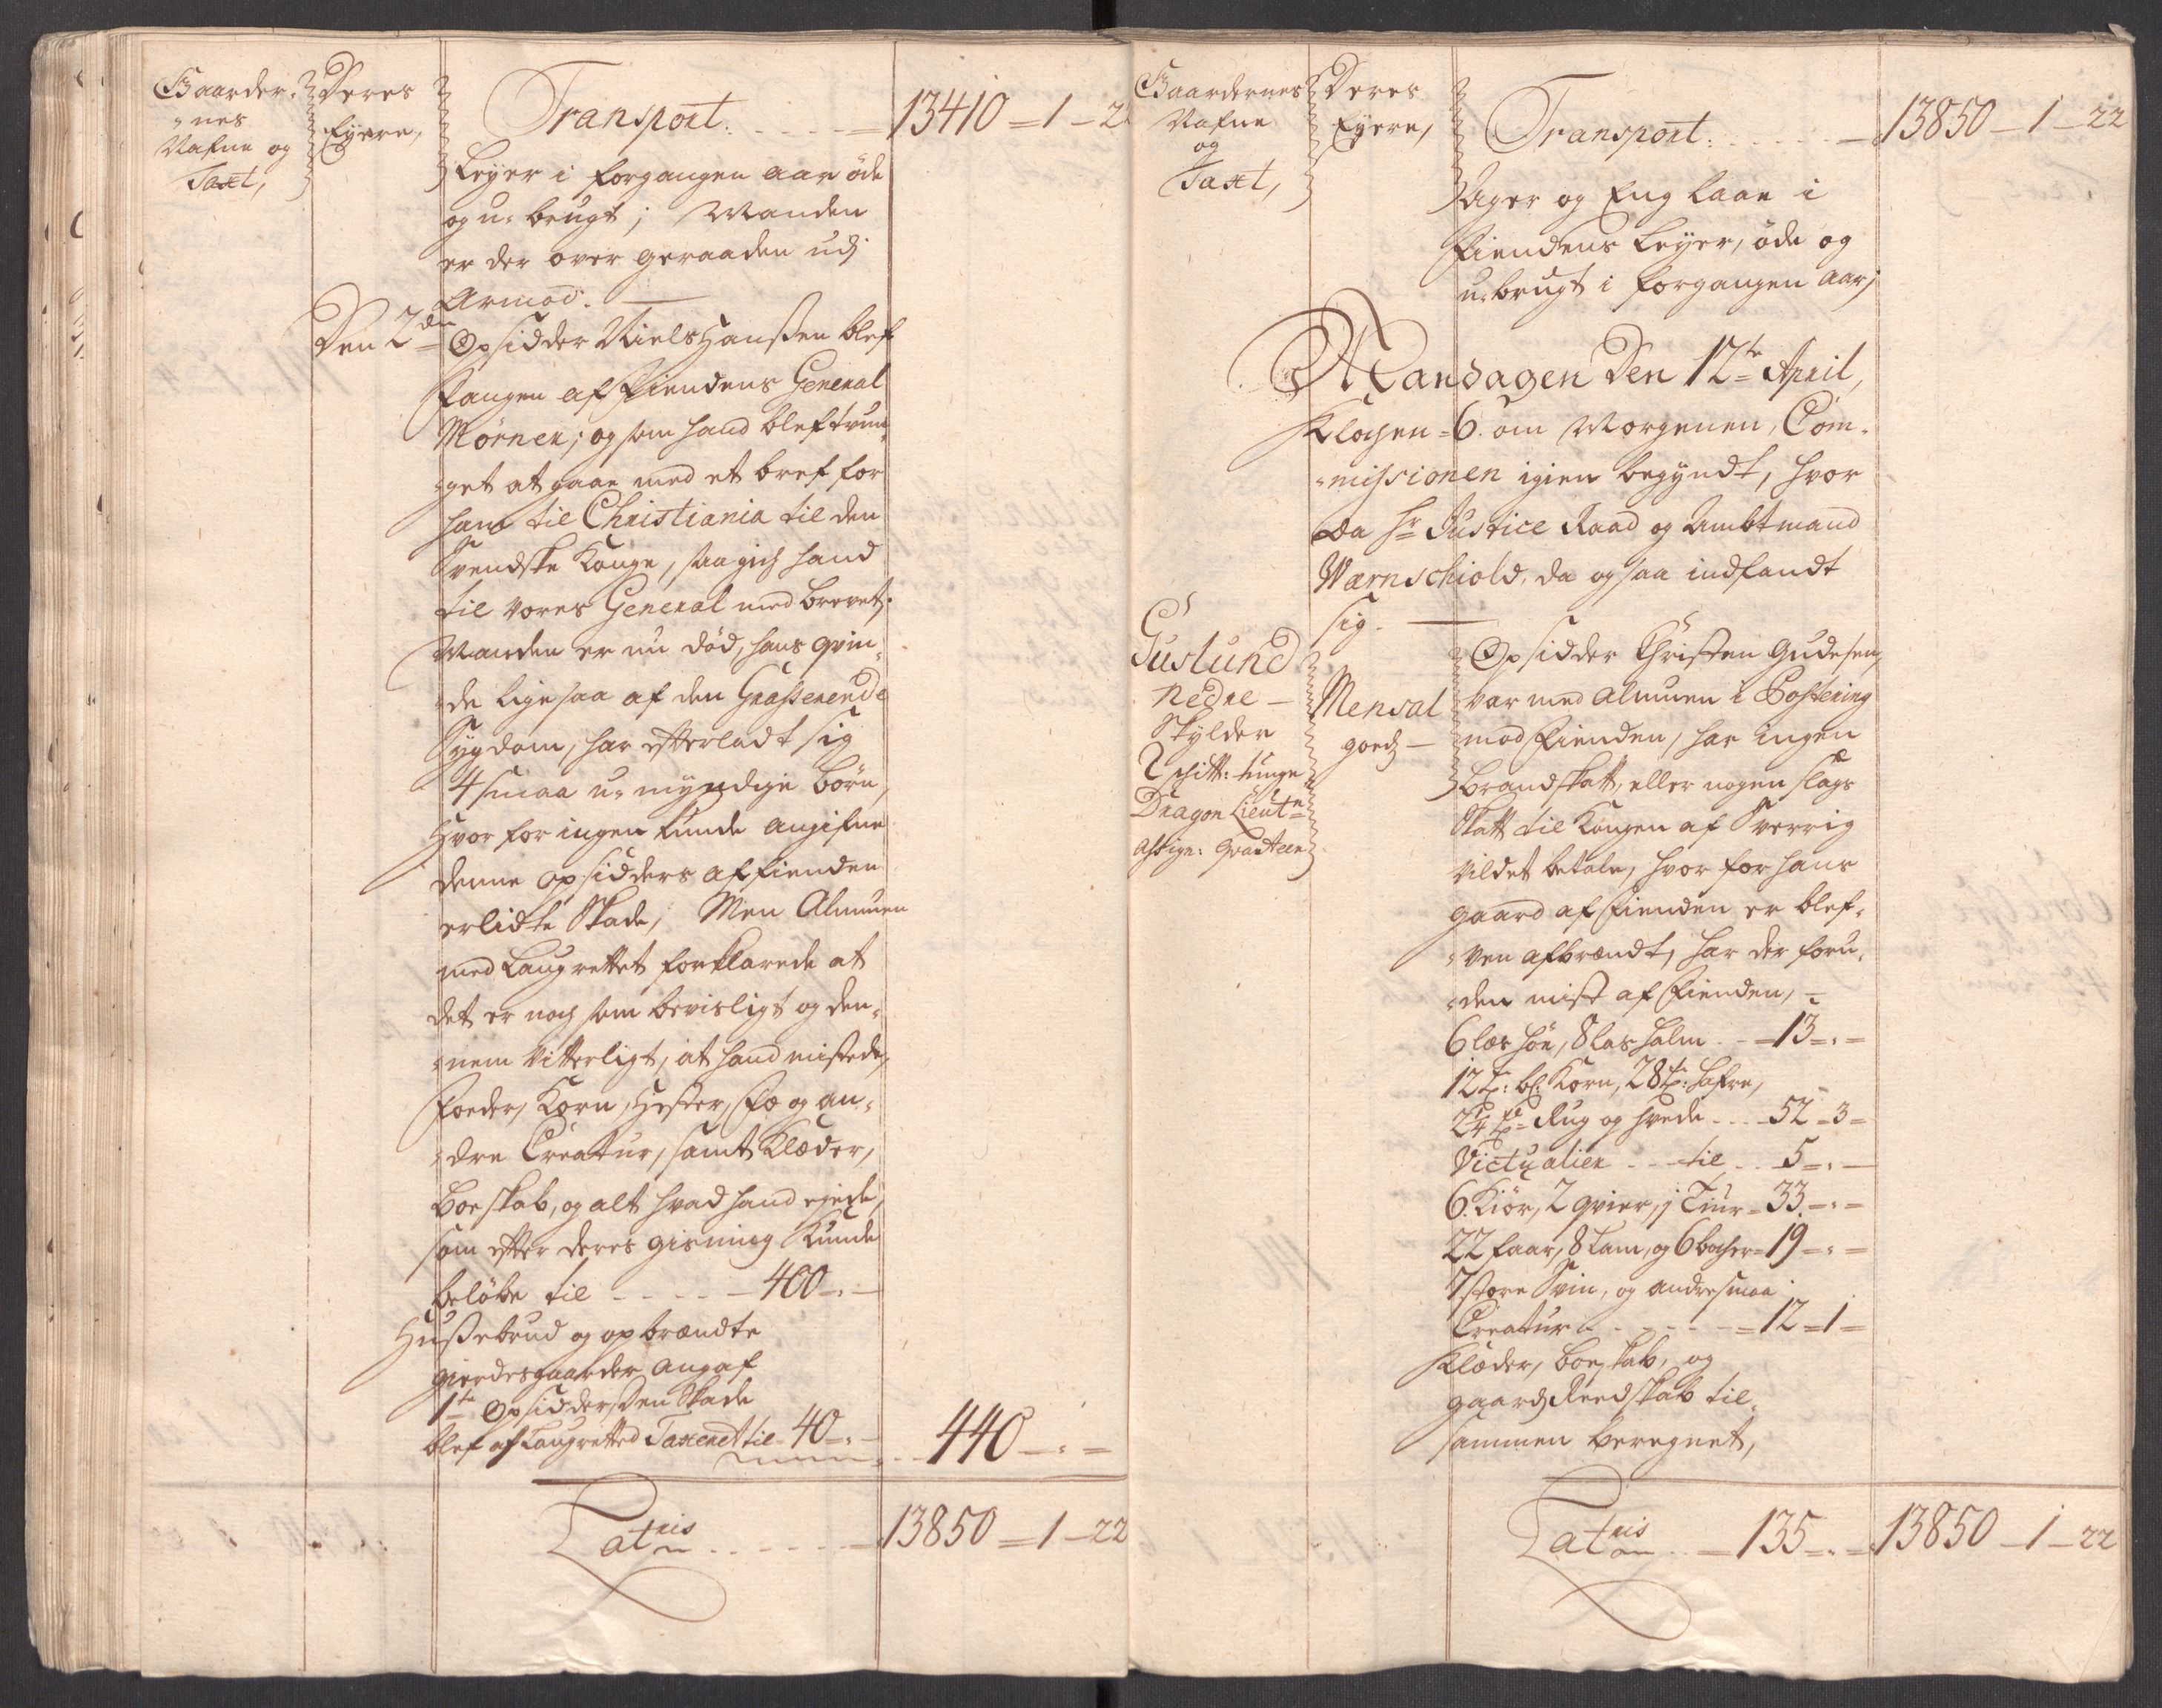 Gaarder-
"nes
Nafne og
Taxt,
Deres
Eyere,
Transport. - - - - = 13410 = 1 - 22
Leyer i forgangen aar öde
og u-brugt; Manden
er der over geraaden udj
Armod. —
Den 2den Opsidder Niels Hanssen blef
fangen af Fiendens General
Mörner; og som hand blef tvun-
-get at gaae med et bref for
ham til Christiania til den
Svendske Konge, saa gich hand
til vores General med brevet;
Manden er nu död, hans qvin-
-de lige saa af den Grasserende
Sygdom, har efterladt sig
4 smaa u-myndige börn,
Hvor for ingen kunde angifve
denne opsidders af fienden
erlidte Skade; Men Almuen
med Laugrettet forklarede at
det er noch som bevisligt og den-
-nem vitterligt, at hand mistede,
Foeder, Korn, Hester, Fæ og an-
-dre Creatur, samt Klæder,
boeskab, og alt hvad hand ejede,
som efter deres gisning Kunde
belöbe til - - - - - 400 - " -
Hussebrud og opbrændte
gierdesgaarder angaf
1te Opsidder, Den Skade
blef af Laugretted Taxeret til - 40 - " - 440 - " =
Latris - - - - - = 13850 = 1 - 22
Gaardernes
Nafne
og
Taxt,
Deres
Eyere,
Transport. - - - - - 13850 - 1 - 22
Ager og Eng laae i
Fiendens Leyer, öde og
u-brugt i forgangen aar;
Mandagen Den 12te April,
Klochen = 6. om Morgenen, Com-
-missionen igien begyndt, hvor
da Hr Justice Raad og Ambtmand
Wernschiold, da og saa indfandt
sig. —
Guslund
Nedre —
Skylder
2 schitt: tunge
Dragon Lieutn
Assign: Qvarteer
Mensal
goedz —
Opsidder Christen Gudesen,
var med Almuen i Postering
mod Fienden, har ingen
brandskatt, eller nogen slags
Skatt til Kongen af Sverrig
vildet betale, hvor for hans
gaard af Fienden er blef-
-ven afbrændt, har der foru-
-den mist af Fienden, -
6 læs höe, 8 las halm - - 13 - " =
12 tr: bl: Korn, 28 tr: hafre,
2 1/4 tr Rug og hvede - - - 52 - 3 =
Victualier - - - til - - 5 = " —
6. Kiör, 2 qvier, 1 Tiur = 33. - " =
22 faar, 8 Lam, og 6 bocher = 19 - " =
7 store Svin, og andre smaa
Creatur - - - - - - = 12 = 1 =
Klæder, boeskab, og
gaards Reedskab til-
sammen beregnet,
Latris - - = 135 = " = 13850 - 1 - 22